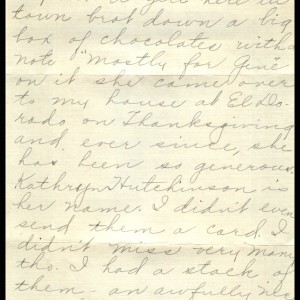 here in
town brot down a big
box of chocolates with a
note "Mostly for Gene"
on it she came over
to my house at El Do-
rado on Thanksgiving
and ever since, she
has been so generous.
Kathryn Hutchinson is
her name. I didn't even
send them a card. I
didn't miss very many
tho. I had a stack of
them - an awfully